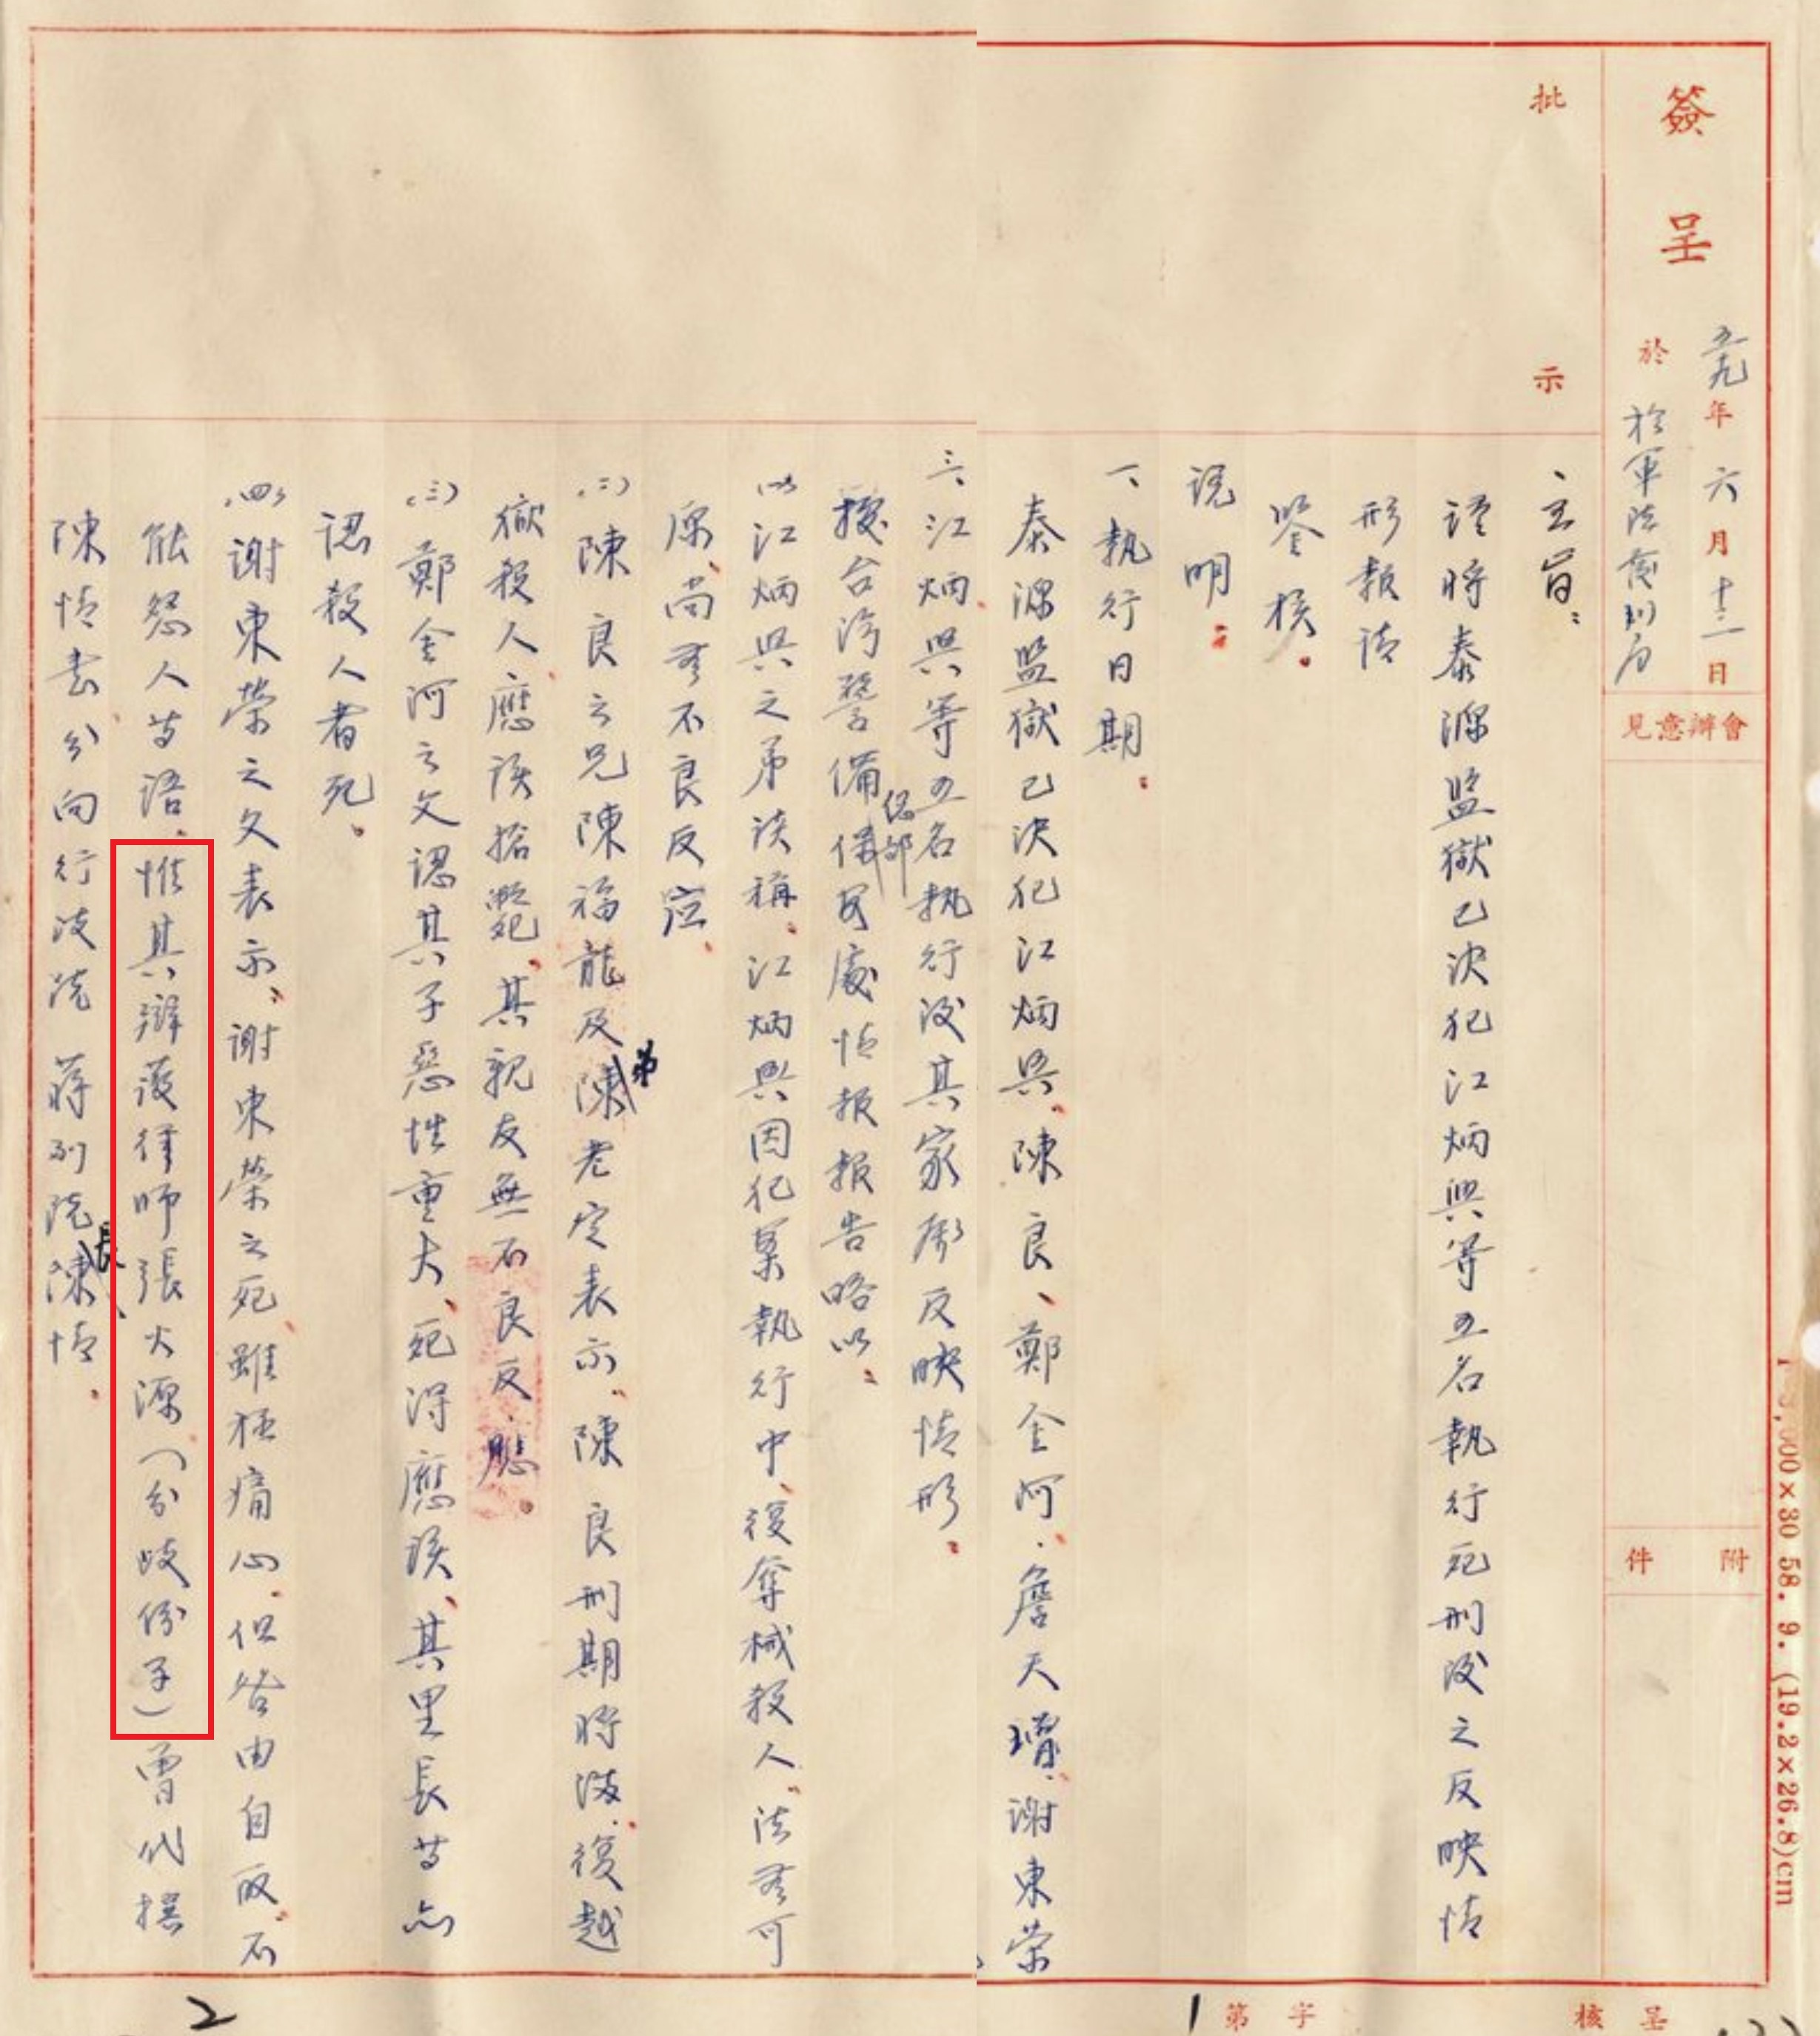 簽呈
五九年六月十三日
於 於軍法處
會辦意見
附件
批示
主旨:
謹將泰源監獄已決犯江炳興等五名執行死刑後之反映情
形報請
鑒核。
說明:
一、執行日期。
泰源監獄已決犯江炳興、陳良、鄭金河、詹天增、謝東榮
三、江炳興等五名執行後其家屬反映情形。
據台灣警備總部保安處情報報告略以:
㈠江炳興之弟談稱、江炳興因犯案執行中、復奪械殺人、法無可
原、尚無不良反應、
㈡陳良之兄陳福龍及弟老定表示、陳良刑期將滿、復越
獄殺人、應該槍斃、其親友無不良反應。
㈢鄭金河之父認其子惡性重大、死得應該、其里長等亦
認殺人者死。
㈣謝東榮之父表示、謝東榮之死雖極痛心、但咎由自取、不
能怨人等語、惟其辯護律師張火源(分歧份子)曾代撰
陳情書分向行政院 蔣副院長、陳情。
呈核
字第
1
2
1 3,000×30 58. 9. (19.2×26.8)cm